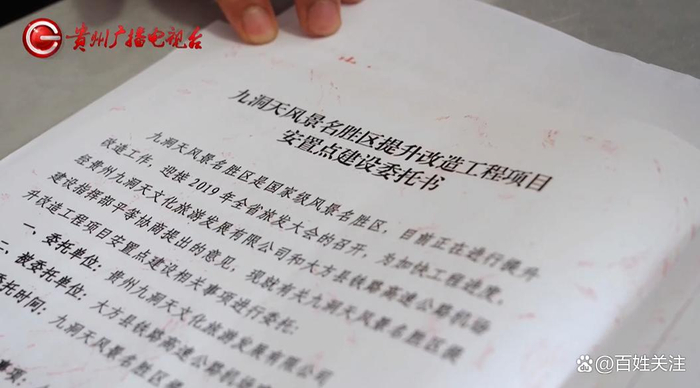 贵州广播电视台
九洞天风景名胜区提升改造工程项目
安置点建设委托书
九洞天风景名胜区是国家级风景名胜区，目前正在进行提升
改造工作，迎接2019年全省旅发大会的召开，为加快工程进度，
经贵州九洞天文化旅游发展有限公司和大方县铁路高速公路机场
建设指挥部平等协商提出的意见，现就有关九洞天风景名胜区提
升改造工程项目安置点建设相关事项进行委托：
一、委托单位：贵州九洞天文化旅游发展有限公司
二、被委托单位：大方县铁路高速公路机场
委托时间：九洞天风景名胜区提
事项：
百姓关注